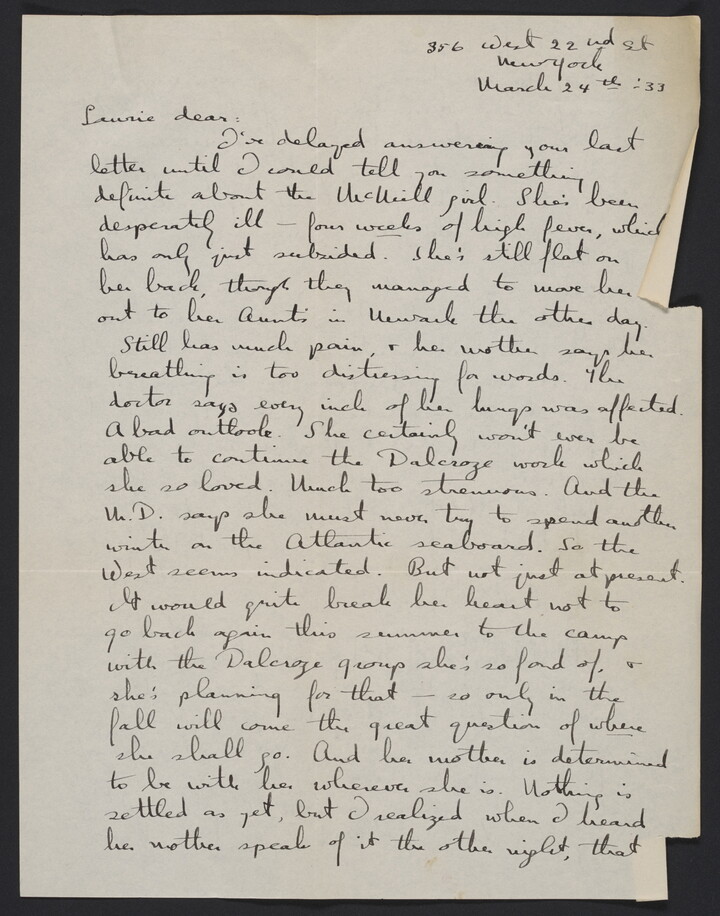 356 West 22nd St
New York
March 24th :33
Laurie dear:
I've delayed answering your last
letter until I could tell you something
definite about the McNeill girl. She's been
desperately ill – four weeks of high fever, which
has only just subsided. She's still flat on
her back, though they managed to move her
out to her Aunt's in Newark the other day.
Still has much pain, & her mother says her
breathing is too distressing for words. The
doctor says every inch of her lungs was affected.
A bad outlook. She certainly won't ever be
able to continue the Dalcroze work which
she so loved. Much too strenuous. And the
M.D. says she must never try to spend another
winter on the Atlantic seaboard. So the
West seems indicated. But not just at present.
It would quite break her heart not to
go back again this summer to the camp
with the Dalcroze group she's so fond of, &
she's planning for that – so only in the
fall will come the great question of where
she shall go. And her mother is determined
to be with her wherever she is. Nothing is
settled as yet, but I realized when I heard
her mother speak of it the other night, that